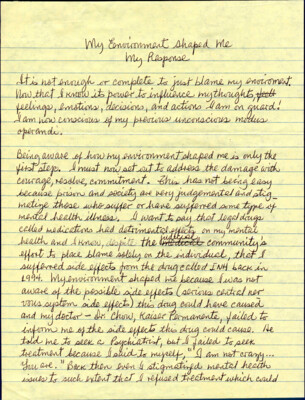 My Environment Shaped Me
My Response
It is not enough or complete to just blame my enviroment.
Now that I know its power to influence my thoughts,
feelings, emotions, decisions, and actions I am on guard!
I am now conscious of my previous unconscious modus
operandi.
Being aware of how my environment shaped me is only the
first step. I must now set out to address the damage with
courage, resolve, commitment. This has not being easy
because prison and society are very judgemental and stig-
matize those who suffer or have suffered some type of
mental health illness. I want to say that legal drugs
called medications had detrimental effects on my mental
health and I know, despite the medical community's
effort to place blame solely on the individual, that I
suffered side effects from the drug called INH back in
1994. My environment shaped me because I was not
aware of the possible side effects (serious central ner-
vous system side effects) this drug could have caused
and my doctor - Dr. Chow, Kaiser Permanente, failed to
inform me of the side effects this drug could cause. He
told me to seek a Psychiatrist, but I failed to seek
treatment because I said to myself, "I am not crazy...
You are." Back then even I stigmatized mental health
issues to such extent that I refused treatment which could